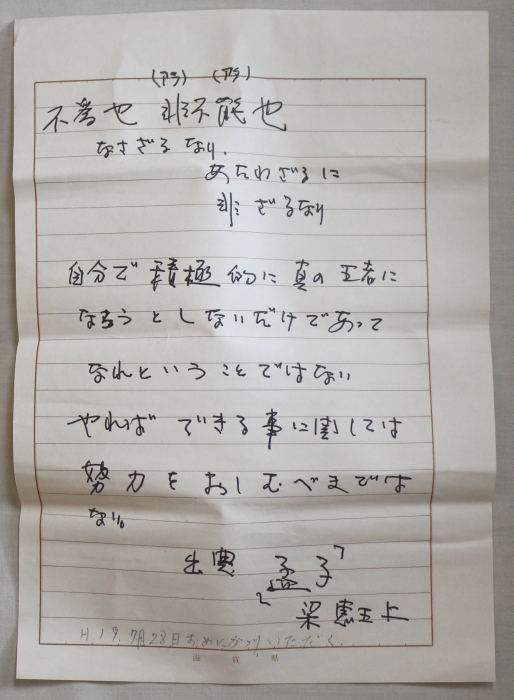 不為也 非不能也
なさざるなり.
あたわざるに
非ざるなり
自分で積極的に真の王者に
なろうとしないだけであって
なれということではない
やればできる事に関しては
努力をおしむべきでは
ない
出典 孟子
「梁恵王上
H.19.7月28日おめにかかりいただく.
滋賀県